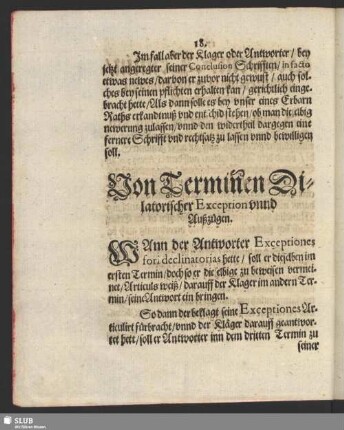 18.
Im fall aber der Klager oder Antworter / bey
jetzt angeregter seiner Conclusion Schrifften / in facto
etwas newes / darvon er zuvor nicht gewust / auch sol-
ches bey seinen pflichten erhalten kan / gerichtlich einge-
bracht hette / Als dann solle es bey vnser eines Erbarn
Raths erkandtnuß vnd entschid stehen / ob man dieselbig
newerung zulassen / vnnd den widertheil dargegen eine
fernere Schrifft vnd rechtsatz zu lassen vnnd bewilligen
soll.
Von Terminen Di-
latorischer Exception vnnd
Außzügen.
WAnn der Antworter Exceptiones
fori declinatorias hette / soll er dieselben im
ersten Termin / doch so er die selbige zu beweisen vermei-
net / Articuls weiß / darauff der Klager im andern Ter-
min / seine Antwort ein bringen.
So dann der beklagt seine Exceptiones Ar-
ticulirt fürbracht / vnnd der Kläger darauff geantwor-
tet hett / soll er Antworter inn dem dritten Termin zu
seiner
SLUB
Wir führen Wissen.